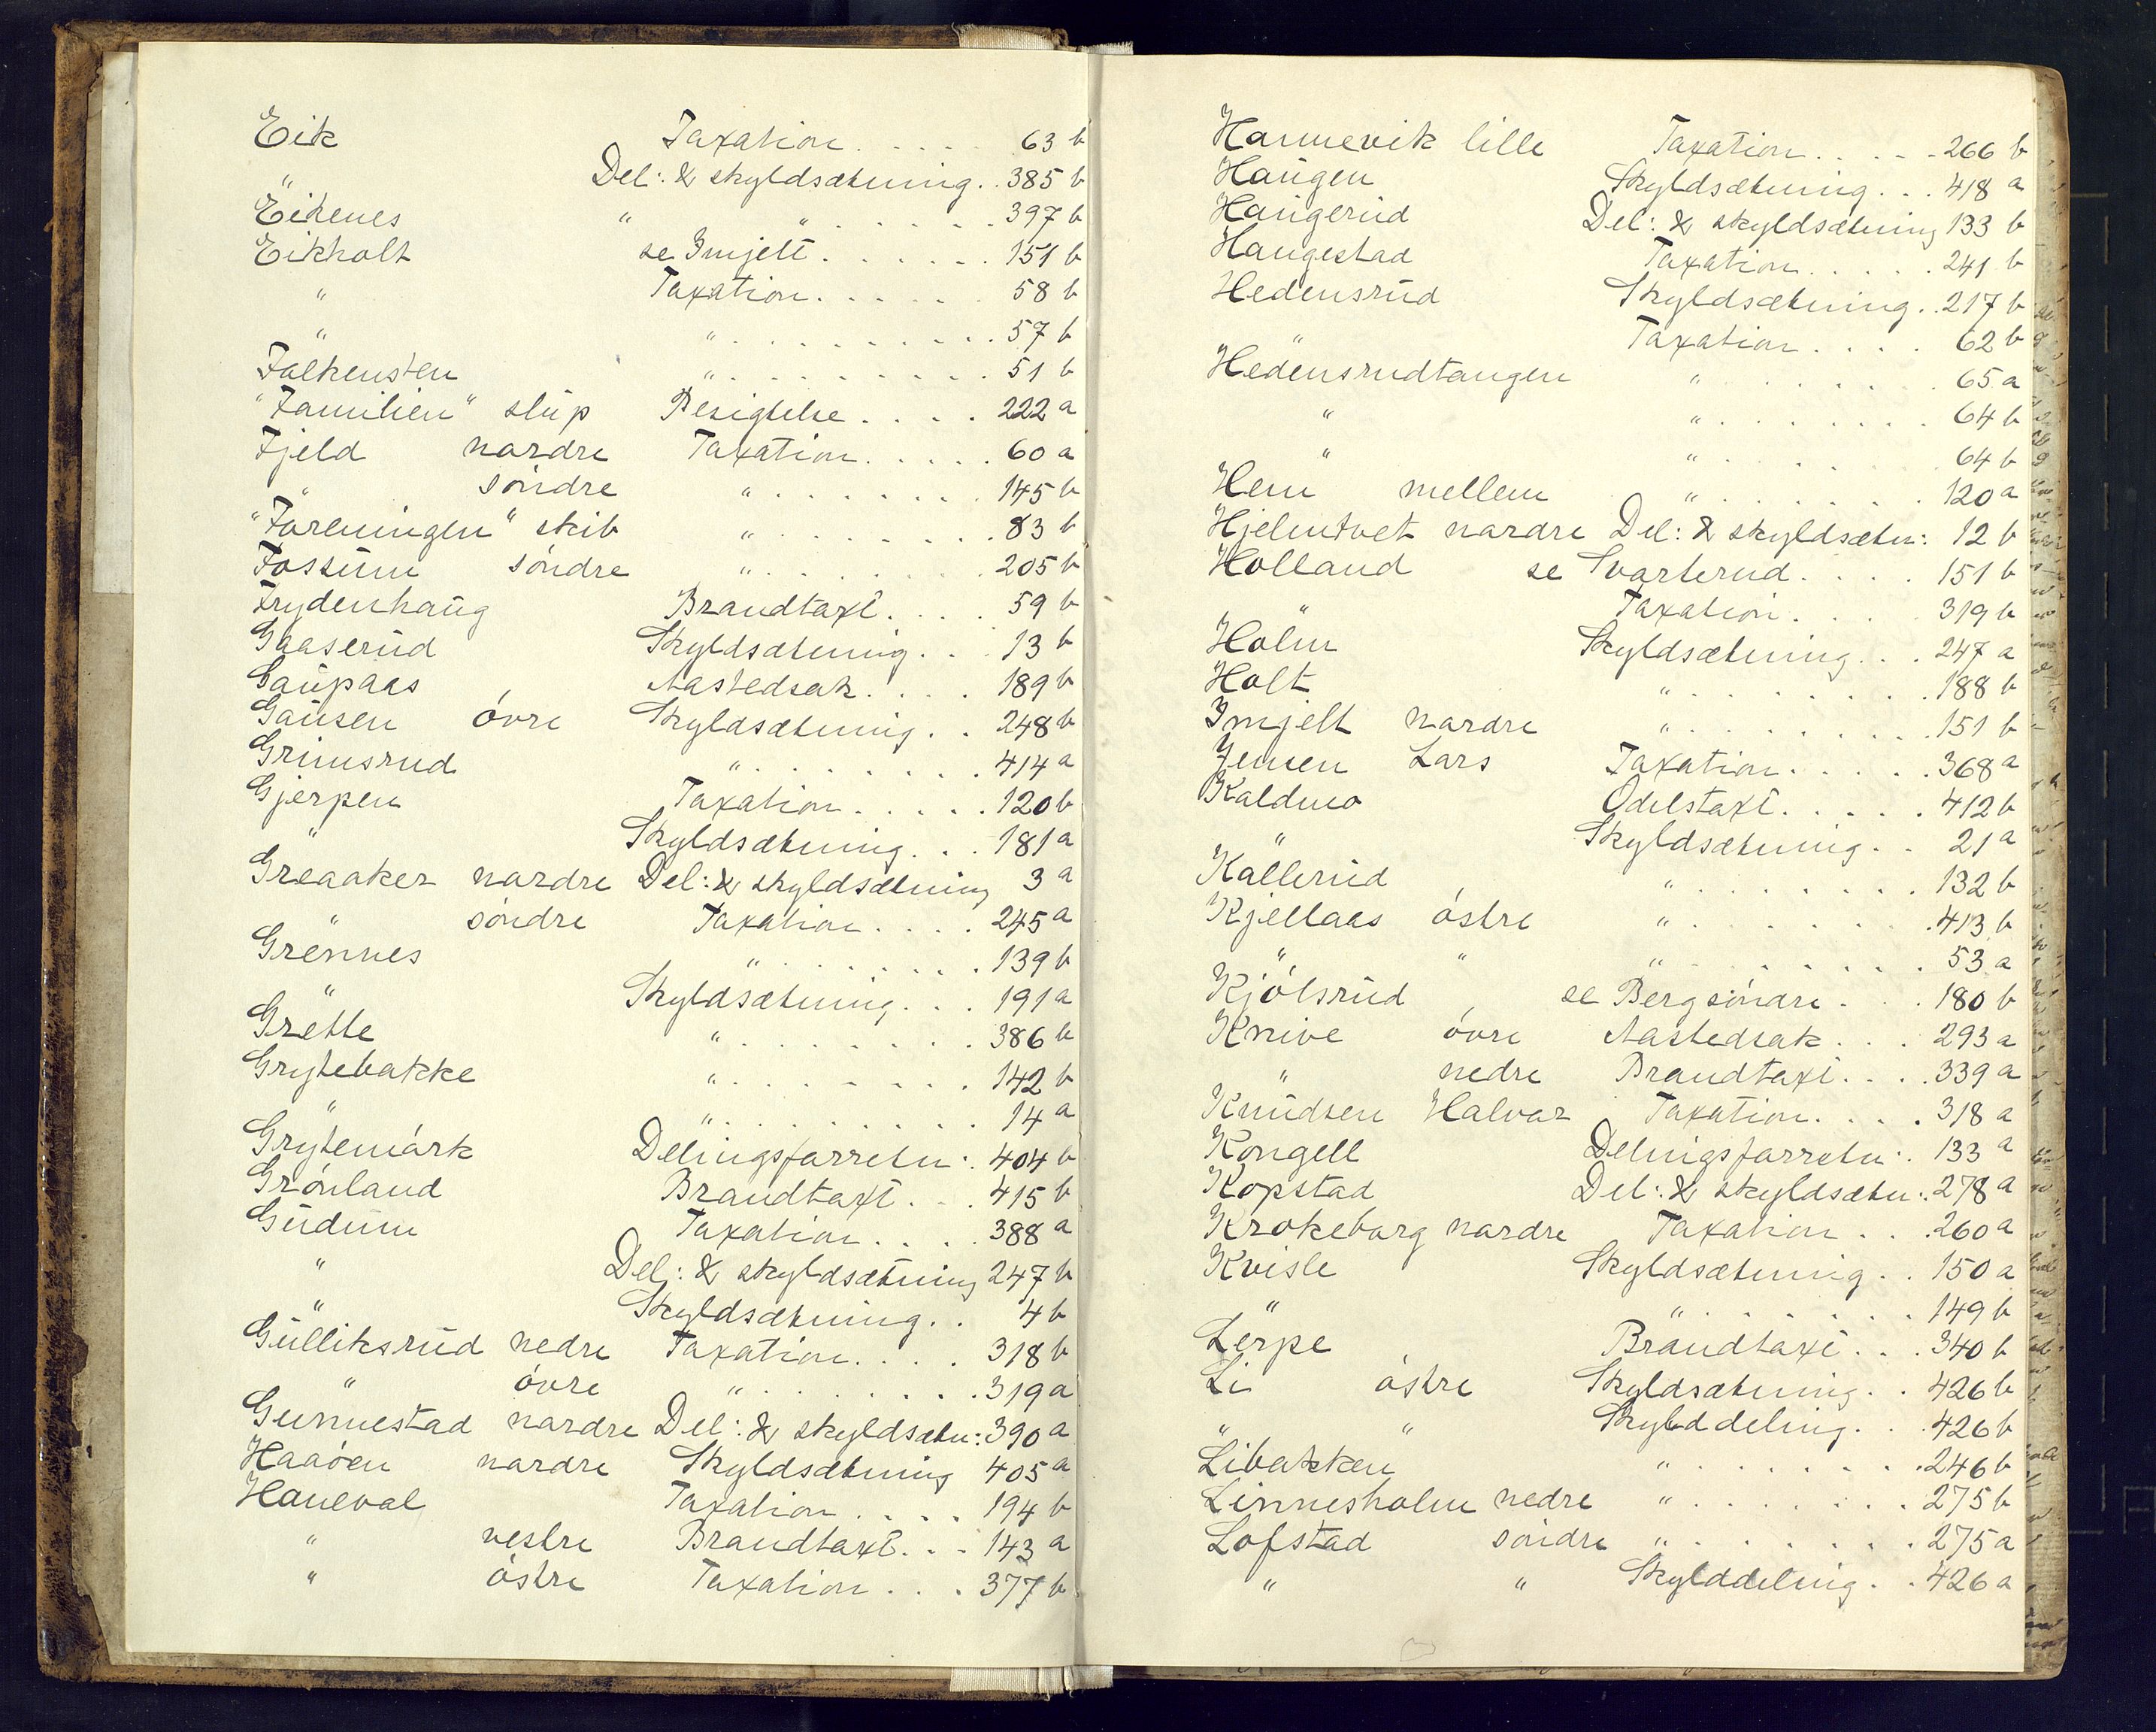 Eik Taxation. . . . . 63 b
" Del: & skyldsætning. . 385 b
Eikenes " " . . . . . . 397 b
Eikholt se Imjelt. . . . . . 151 b
" Taxation. . . . . 58 b
" " . . . . . . . . . . 57 b
Falkensten " . . . . . . . . . . 51 b
"Familien" slup Besigtelse. . . . 222 a
Fjeld nordre Taxation. . . . . 60 a
" söndre " . . . . . . . 145 b
"Foreningen" skib " . . . . . . . . 83 b
Fossum söndre " . . . . . . . 205 b
Frydenhaug Brandtaxt. . . . 59 b
Gaaserud Skyldsætning. . . 13 b
Gaupaas Aastedsak. . . . 189 b
Gausen övre Skyldsætning. . 248 b
Grimsrud " . . . . . . . . . 414 a
Gjerpen Taxation. . . . . 120 b
" Skyldsætning. . . 181 a
Greaaker nordre Del: & skyldsætning 3 a
" söndre Taxation. . . . 245 a
Grennes " . . . . . . . 139 b
" Skyldsætning. . . 191 a
Grette " . . . . . . . . 386 b
Grytebakke " . . . . . . . . 142 b
" " . . . . . . . . . 14 a
Grytemörk Delingsforretn: . 404 b
Grönland Brandtaxt. . . 415 b
Gudum Taxation. . . . 388 a
" Del: & skyldsætning 247 b
" Skyldsætning. . 4 b
Gulliksrud nedre Taxation. . . . 318 b
" övre " . . . . . . . . 319 a
Gunnestad nordre Del: & skyldsætn: 390 a
Haaöen nordre Skyldsætning 405 a
Haneval Taxation. . . . 194 b
" vestre Brandtaxt. . . 143 a
" östre Taxation. . . . 377 b
Hannevik lille Taxation. . . . . 266 b
Haugen Skyldsætning. . . 418 a
Haugerud Del: & skyldsætning 133 b
Haugestad Taxation. . . . . 241 b
Hedensrud Skyldsætning. . 217 b
" Taxation. . . . 62 b
Hedensrudtangen " . . . . . . 65 a
" " . . . . . . . . 64 b
" " . . . . . . 64 b
Hem mellem " . . . . . . . 120 a
Hjelmtvet nordre Del: & skyldsætn: 12 b
Holland se Svarterud. . . . 151 b
" Taxation. . . . 319 b
Holm Skyldsætning. . . 247 a
Holt " . . . . . . . . . 188 b
Imjelt nordre " . . . . . . . . . 151 b
Jensen Lars Taxation. . . . . 368 a
Kaldmo Odelstaxt. . . . . 412 b
" Skyldsætning. . 21 a
Kallerud " . . . . . . . . 132 b
Kjellaas östre " . . . . . . . 413 b
" " " . . . . . . . 53 a
Kjölsrud se Berg söndre . . . 180 b
Knive övre Aastedsak. . . 293 a
" nedre Brandtaxt. . . . 339 a
Knudsen Halvor Taxation. . . . 318 a
Kongell Delingsforretn: . 133 a
Kopstad Del: & skyldsætn: . 278 a
Krokeborg nordre Taxation . . . 260 a
Kvisle Skyldsætning. . 150 a
" " . . . . . . . . 149 b
Lerpe Brandtaxt. . . 340 b
Li östre Skyldsætning. . 426 b
" " Skylddeling. . . 426 b
Libakken " . . . . . . . . 246 b
Linnesholm nedre " . . . . . . . 275 b
Lofstad söndre " . . . . . . . . 275 a
" " Skylddeling. . . 426 a